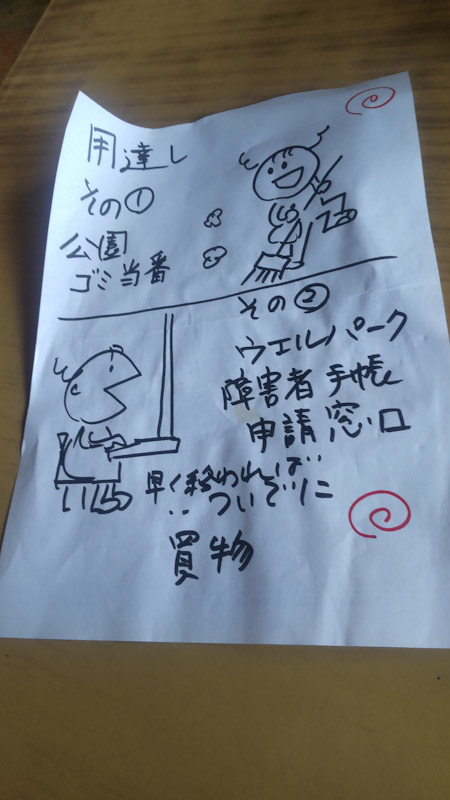 用達し
その①
公園
ゴミ当番
その②
ウエルパーク
障害者手帳
申請窓口
早く終われば
ついでに
買物